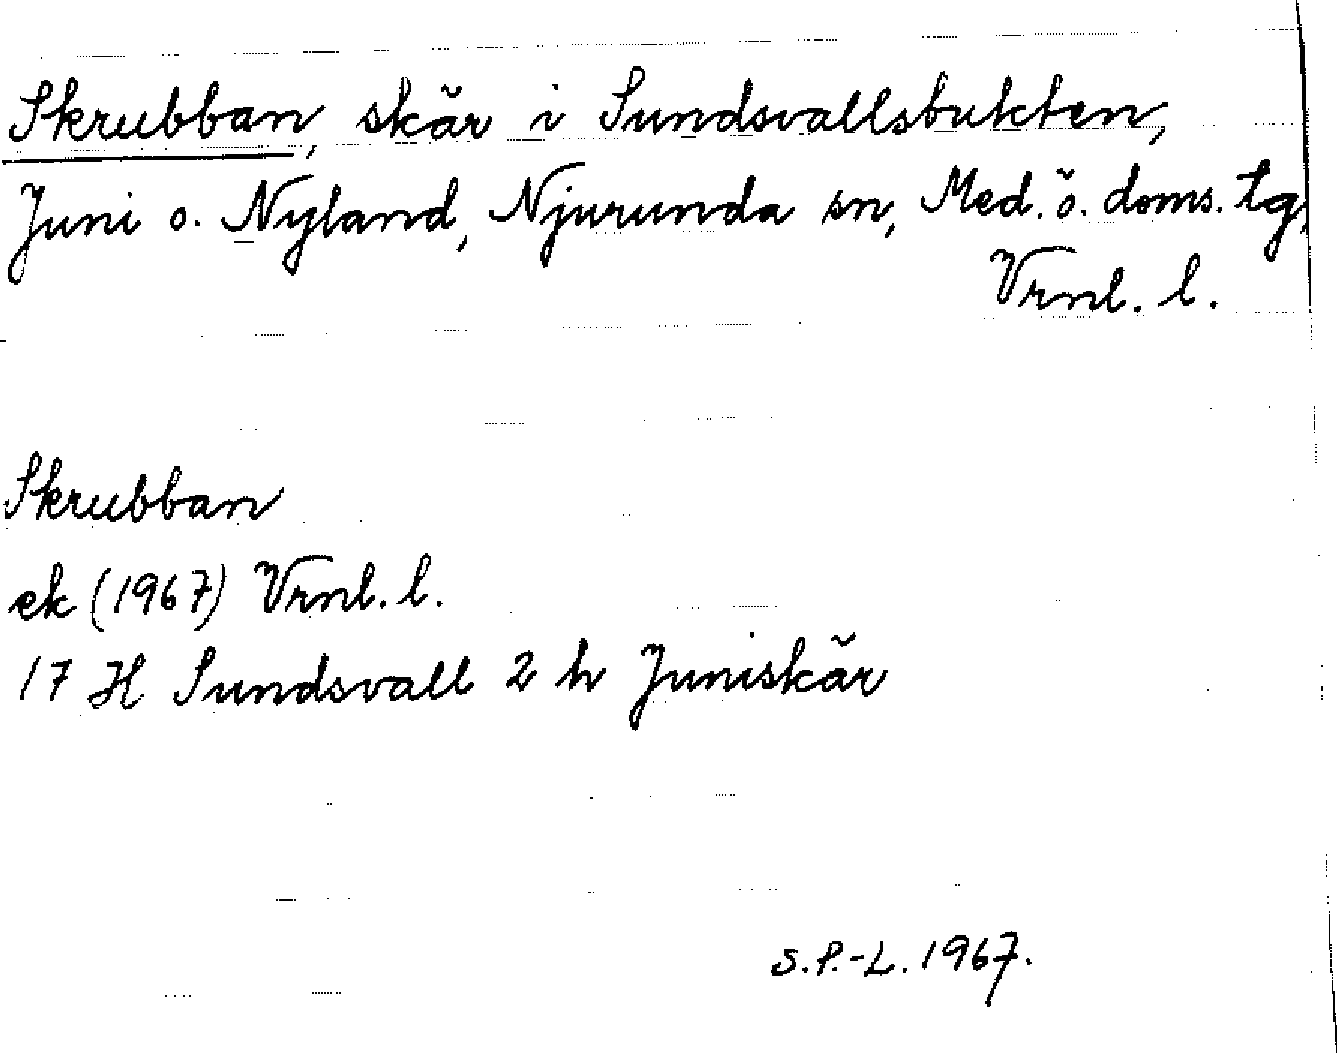 Skrubban, skär i Sundsvallsbukten,
Juni o. Nyland, Njurunda sn, Med. ö. doms. tg,
Vrnl. l.
Skrubban
ek (1967) Vrnl. l.
17 H Sundsvall 2 h Juniskär
S.P.-L. 1967.